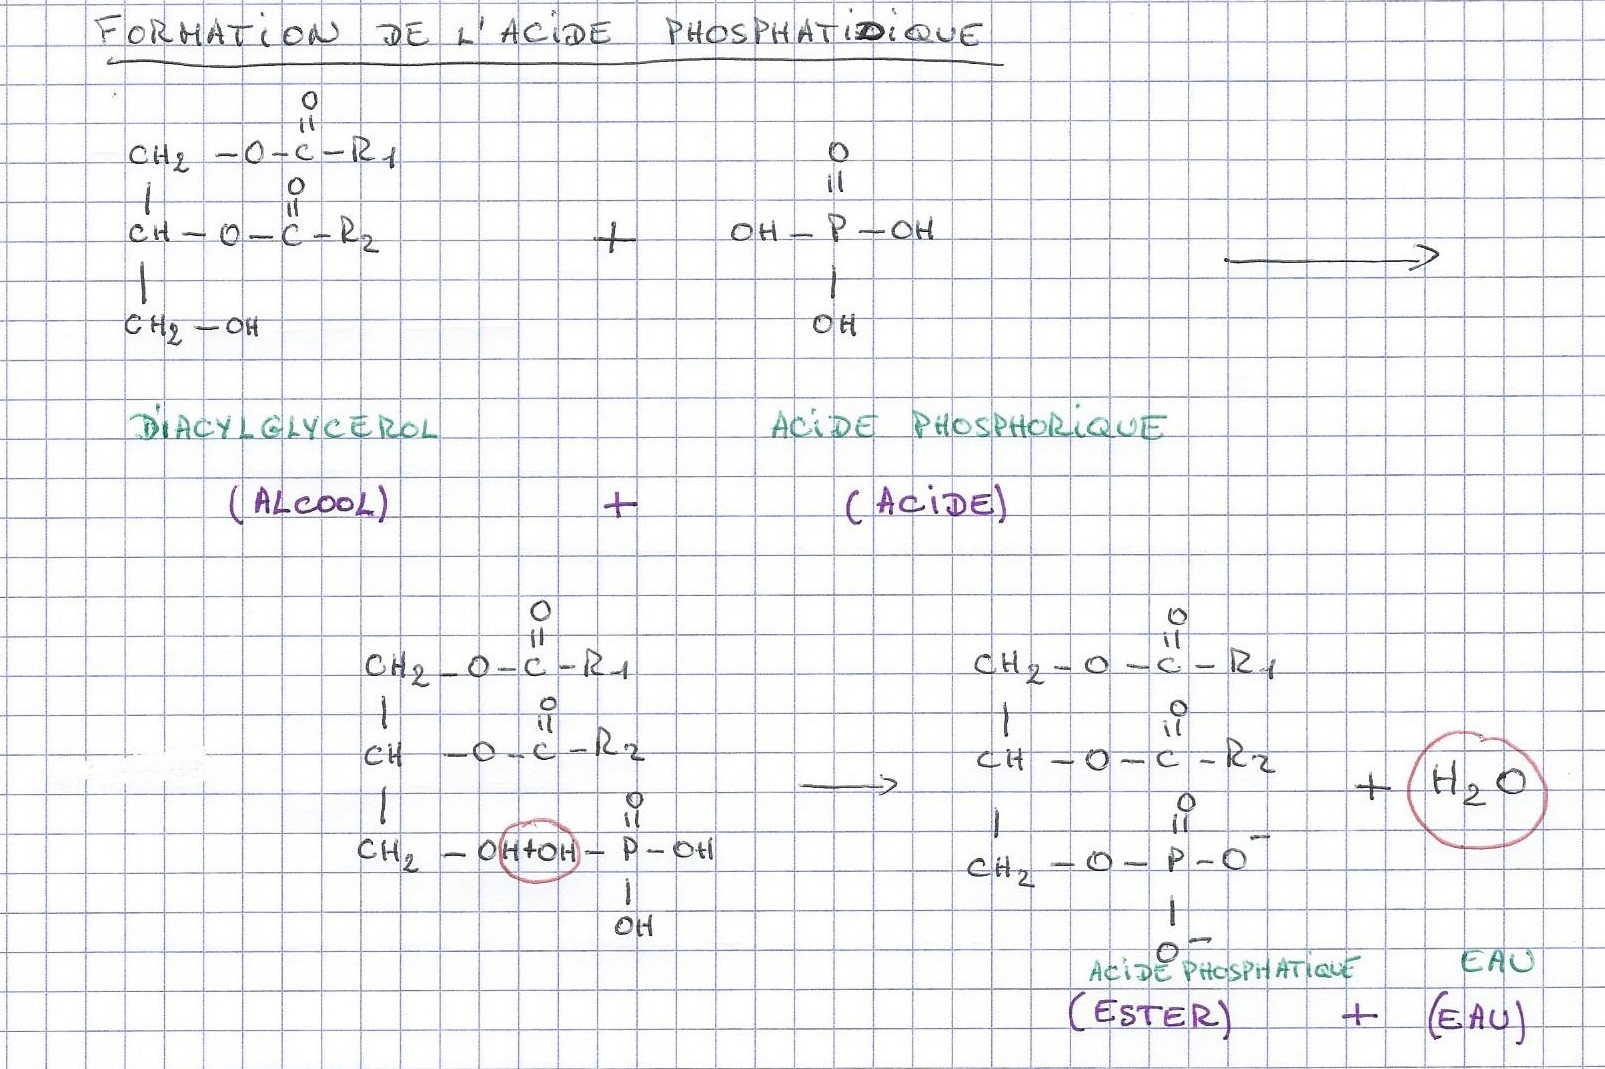 FORMATION DE L'ACIDE PHOSPHATIDIQUE
O
||
CH2 -O-C-R1
| O
||
CH-O-C-R2
|
CH2-OH
+
O
||
OH-P-OH
|
OH
DIACYLGLYCEROL ACIDE PHOSPHORIQUE
(ALCOOL) + (ACIDE)
O
||
CH2-O-C-R1
| O
||
CH -O-C-R2
| O
||
CH2 -OH+OH-P-OH
|
OH
O
||
CH2-O-C-R1
| O
||
CH-O-C-R2
| O
||
CH2-O-P-O-
|
O-
+ H2O
ACIDE PHOSPHATIQUE EAU
(ESTER) + (EAU)